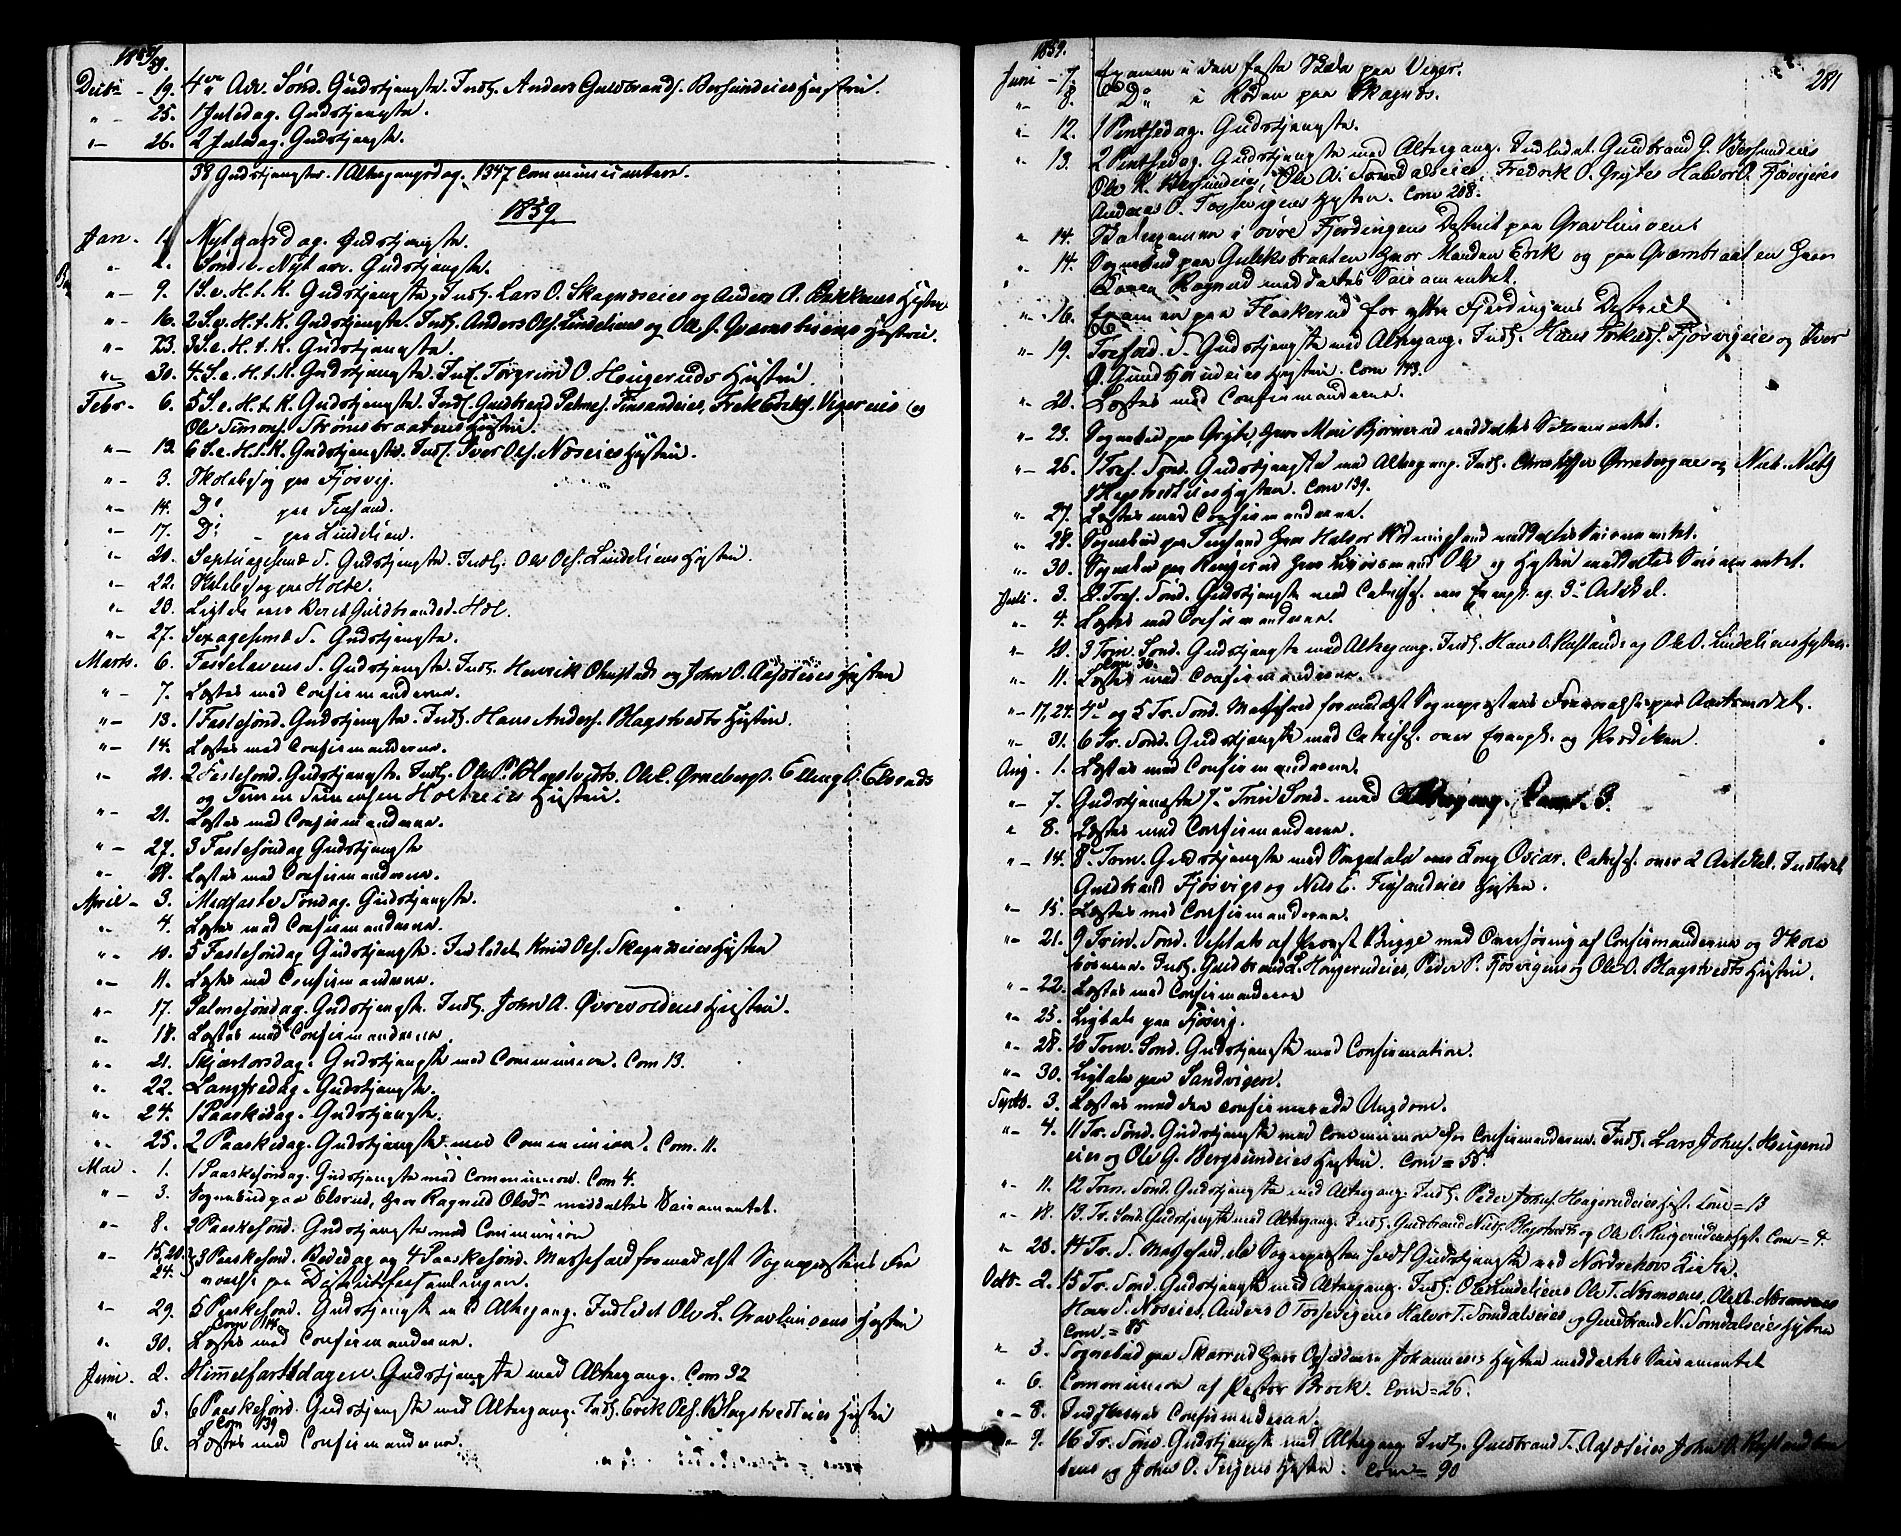 1858/59.
Decbr - 19. 4de Adv. Sønd. Gudstjeneste. Indl. Anders Guldbrands. Bersundeies Hustru.
" - 25. 1 Juledag. Gudstjeneste.
" - 26. 2 Juledag. Gudstjeneste.
38 Gudstjenester. 1 Altergangsdag. 1347 Communicantere.
1859
Jan. 1. Nytaarsdag. Gudstjeneste.
" 2. Sønd. e. Nyt aar. Gudstjeneste.
" - 9. 1 S. e. H. t. K. Gudstjeneste, Indl. Lars O. Skagnæseies og Anders A. Bakkenes Hustru
" - 16. 2 S. e. H. t. K. Gudstjeneste. Indl. Anders Ols. Lindeliens og Ole J. Hustru.
" - 23. 3 S. e. H. t. K. Gudstjeneste.
" - 30. 4. S. e. H. t. K. Gudstjeneste. Indl. Torgrim O. Heugeruds Hustru.
Febr - 6. 5 S. e. H. t. K. Gudstjeneste. Indl. Guldbrand Palmes. Finsandeies, Fredr. Eriks. Vigereies og
Ole Simons. Strømsbraatens Hustru.
" - 13. 6 S. e. H. t. K. Gudstjeneste. Indl. Iver Ols. Næseies Hustru.
" - 3. Skolebesøg paa Fjøsvig.
" - 14. Do paa Finsand.
" - 17. Do - paa Lindelien.
" - 20. Septuagesima S. Gudstjeneste. Indl. Ole Ols. Lindeliens Hustru.
" - 22. Skolebesøg paa Holte.
" - 20. Ligtale over Beret Guldbrandsd. Hol.
" - 27. Sexagesima S. Gudstjeneste.
Marts. 6. Fastelavens S. Gudstjeneste. Indl. Henrik Olmstads og John O. Aasleies Hustru
" - 7. Læstes med Confirmanderne.
" - 13. 1 Fastesønd. Gudstjeneste. Indl. Hans Anders. Blagstvedts Hustru.
" - 14. Læstes med Confirmanderne.
" - 20. 2 Fastesønd. Gudstjeneste. Indl. Ole P. Blagstvedts, Ole E. Ørnebergs. Elling O. Elsruds
og Simen Simensen Holteeies Hustru.
" - 21. Læstes med Confirmanderne.
" - 27. 3 Fastesøndag Gudstjeneste
" - Læstes med Confirmanderne.
April - 3. Midfaste Søndag. Gudstjeneste.
" 4. Læstes med Confirmanderne.
" - 10. 5 Fastesøndag Gudstjeneste. Indledet Knud Ols. Skagnæseies Hustru
" - 11. Læstes med Confirmanderne.
" - 17. Palmesøndag. Gudstjeneste. Indl. John A. Øvrevoldens Hustru.
" - 18. Læstes med Confirmanderne.
" - 21. Skjærtorsdag. Gudstjeneste med Communion. Com 13.
" - 22. Langfredag. Gudstjeneste.
" - 24. 1 Paaskedag. Gudstjeneste.
" - 25. 2 Paaskedag. Gudstjeneste med Communion. Com. 11.
Mai - 1. 1 Paaskesøndag. Gudstjeneste med Communion. Com 4.
" - 3. Sognebud paa Elsrud, hvor Ragnild Olsdr meddeltes Sacramentet.
" - 8. 2 Paaskesønd. Gudstjeneste med Communion
" - 15, 20. 24. 3 Paaskesønd. Bededag og 4 Paaskesønd. Messefald formedelst Sognepræstens Fra
værelse paa Districtsforsamlingen.
" - 29. 5 Paaskesønd. Gudstjeneste med Altergang. Indledet Ole L. Gravlimoens Hustru
Com 118.
" 30. Læstes med Confirmanderne.
Juni - 2. Himmelfartsdagen. Gudstjeneste med Altergang. Com 92
" 5. 6 Paaskesønd. Gudstjeneste med Altergang. Indl. Erik Ols. Blagstvedteies Hustru
Com 139
6. Læstes med Confirmanderne.
281
1859.
Juni - 7. Examen i den faste Skole paa Viger.
" 8. Do i Roden paa Skagnæs.
" 12. 1 Pintsedag. Gudstjeneste.
" 13. 2 Pintsedag. Gudstjeneste med Altergang. Indledet. Guldbrand G. Bersundeies
Ole K. Bersundeies, Ole A. Somdalseies, Fredrik O. Grytes Halvor O. Fjøsvigeies
Anders O. Tossevigens Hustru. Com 208.
" 14. Examen i øvre Fjerdingens District paa Gravlimoen
" 14. Sognebud paa Guliksbraaten hvor Manden Erik og paa hvor
Konen Ragnild meddeltes Sacramentet.
" 16. Examen paa Flaskerud for ytre Fjerdingens District
" - 19. Trefold. S. Gudstjeneste med Altergang. Indl. Hans Fjøsvigeies og Iver
G. Hustru. Com 173.
" 20. Læstes med Confirmanderne.
" - 23. Sognebud paa Gryte, hvor Mari Bjørnerud meddeltes Sacramentet.
" - 26. 1 Tref. Sønd. Gudstjeneste med Altergang. Indl. Christopher Ørnebergeies og Niels Niels.
Blagstvedteies Hustru. Com 139.
" - 27. Læstes med Confirmanderne.
" 28. Sognebud paa Finsand hvor Halvor meddeltes Sacramentet.
" 30. Sognebud paa hvor Ole og Hustru meddeltes Sacramentet.
Juli - 3. 2. Tref. Sønd. Gudstjeneste med Catechis. over Evangl. og 3die Artikel.
" 4. Læstes med Confirmanderne.
" 10. 3 Trin. Sønd. Gudstjeneste med Altergang. Indl. Hans O. og Ole O. Lindeliens Hustru.
Com 36.
" 11. Læstes med Confirmanderne.
" - 17, 24. 4de og 5 Tr. Sønd. Messefald formedelst Sognepræstens Fraværelse paa Amtsmødet.
" 31. 6 Tr. Sønd. Gudstjeneste med Catechis. over Evangl. og Prædiken.
Aug. 1. Læstes med Confirmanderne.
" - 7. Gudstjeneste 7de Trin Sønd. med Altergang. Com. 3.
" 8. Læstes med Confirmanderne.
" - 14. 8de Trin. Gudstjeneste med Sørgetale over Kong Oscar. Catechis. over 2 Artikel. Indledet
Guldbrand Fjøsvigs og Niels E. Finsandeies Hustru.
" - 15. Læstes med Confirmanderne.
" - 21. 9 Trin. Sønd. Visitats af Provst Bugge med Overhøring af Confirmanderne og Skole
børnene. Indl. Guldbrand L. Hougerudeies, Peder P. Fjøsvigens og Ole O. Blagstvedts Hustru.
" - 22. Læstes med Confirmanderne
" 25. Ligtale paa Fjøsvig.
" - 28. 10 Trin. Sønd. Gudstjeneste med Confirmation.
" 30. Ligtale paa Sandvigen.
Septb. 3. Læstes med den confirmerede Ungdom.
" - 4. 11 Tr. Sønd. Gudstjeneste med Communion for Confirmanderne. Indl. Lars Johns. Heugerud
eies og Ole G. Bergsundeies Hustru. Com = 55.
" - 11. 12 Trin. Sønd. Gudstjeneste med Altergang. Indl. Peder Josefs. Haagerudeies Hust. Com = 13
" - 18. 13. Tr. Sønd. Gudstjeneste med Altergang. Indl. Guldbrand Niels. Blagstvedts og Ole O. Hust. Com = 4.
" 25. 14 Tr. S. Messefald, da Sognepræsten holdt Gudstjeneste ved Norderhovs Kirke.
Octb - 2. 15 Tr. Sønd. Gudstjeneste med Altergang. Indl. Ole Lindeliens Ole T. Næsmoens, Ole Næsmoens
Hans S. Næseies, Anders O Tossevigens Halvor T. Somdalseies og Guldbrand N. Somdalseies Hustru
Com. = 85
" 3. Sognebud paa Skarrud hvor Johannes's Hustru meddeltes Sacramentet
" 6. Communion af Pastor Brock. Com = 26.
" - 8. Indskreves Confirmanderne.
" - 9. 16 Tr. Sønd. Gudstjeneste med Altergang. Indl. Guldbrand T. Aasleies John O.
og John O. Hustru. Com = 90